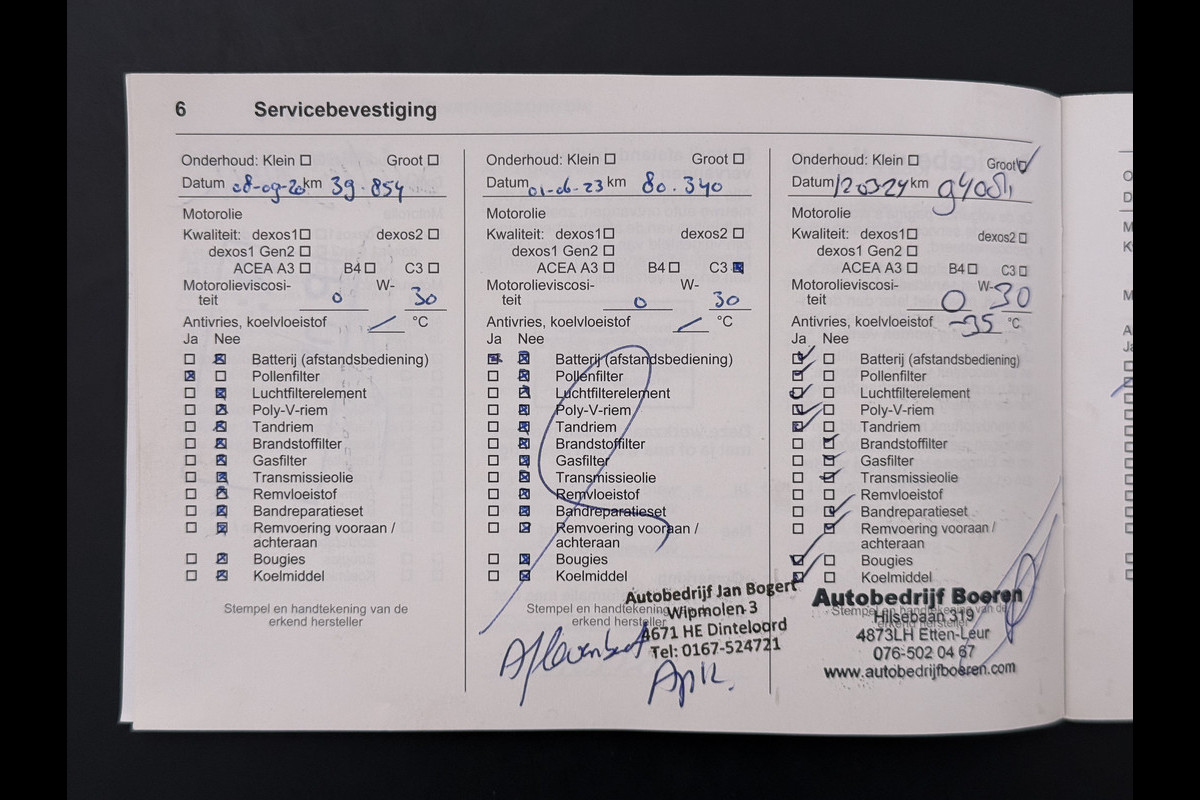 6 Servicebevestiging
Onderhoud: Klein Groot
Datum 08-09-20 km 39.854
Motorolie
Kwaliteit: dexos1 dexos2
dexos1 Gen2
ACEA A3 B4 C3
Motorolieviscosi- W-
teit 0 30
Antivries, koelvloeistof °C
Ja Nee
Batterij (afstandsbediening)
Pollenfilter
Luchtfilterelement
Poly-V-riem
Tandriem
Brandstoffilter
Gasfilter
Transmissieolie
Remvloeistof
Bandreparatieset
Remvoering vooraan /
achteraan
Bougies
Koelmiddel
Stempel en handtekening van de
erkend hersteller
Onderhoud: Klein Groot
Datum 01-06-23 km 80.340
Motorolie
Kwaliteit: dexos1 dexos2
dexos1 Gen2
ACEA A3 B4 C3
Motorolieviscosi- W-
teit 0 30
Antivries, koelvloeistof °C
Ja Nee
Batterij (afstandsbediening)
Pollenfilter
Luchtfilterelement
Poly-V-riem
Tandriem
Brandstoffilter
Gasfilter
Transmissieolie
Remvloeistof
Bandreparatieset
Remvoering vooraan /
achteraan
Bougies
Koelmiddel
Stempel en handtekening
erkend hersteller
Autobedrijf Jan Bogert
Wipmolen 3
4671 HE Dinteloord
Tel: 0167-524721
Apk.
Onderhoud: Klein Groot
Datum 120324 km 94051
Motorolie
Kwaliteit: dexos1 dexos2
dexos1 Gen2
ACEA A3 B4 C3
Motorolieviscosi- W-
teit 0 30
Antivries, koelvloeistof -35 °C
Ja Nee
Batterij (afstandsbediening)
Pollenfilter
Luchtfilterelement
Poly-V-riem
Tandriem
Brandstoffilter
Gasfilter
Transmissieolie
Remvloeistof
Bandreparatieset
Remvoering vooraan /
achteraan
Bougies
Koelmiddel
Stempel en handtekening van de
erkend hersteller
Autobedrijf Boeren
Hilsebaan 319
4873LH Etten-Leur
076-502 04 67
www.autobedrijfboeren.com